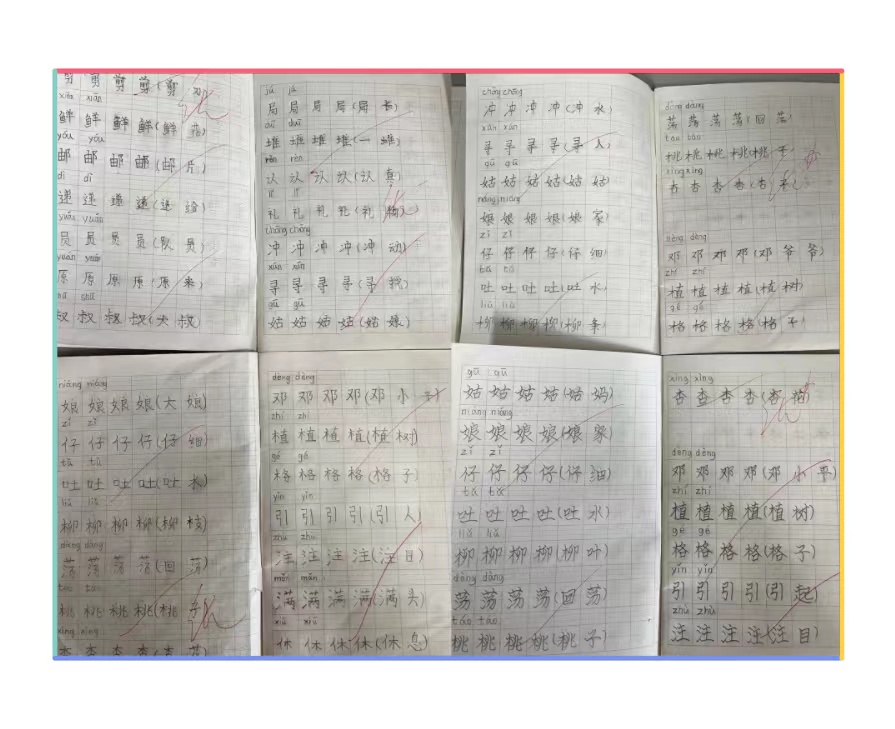 剪 剪 剪 剪(剪
xiān xiān
鲜 鲜 鲜 鲜(鲜
yóu yóu
邮 邮 邮 邮(邮 片)
dì dì
递 递 递 递(递 给)
yuán yuán
员 员 员 员(队 员)
yuán yuán
原 原 原 原(原 来)
shū shū
叔 叔 叔 叔(大 叔)
jú jú
局 局 局 局(局 长)
duī duī
堆 堆 堆 堆(一 堆)
rèn rèn
认 认 认 认(认 真)
lǐ lǐ
礼 礼 礼 礼(礼 物)
chōng chōng
冲 冲 冲 冲(冲 动)
xún xún
寻 寻 寻 寻(寻 找)
gū gū
姑 姑 姑 姑(姑 娘)
chōng chōng
冲 冲 冲 冲(冲 水)
xún xún
寻 寻 寻 寻(寻 人)
gū gū
姑 姑 姑 姑(姑 姑)
niáng niáng
娘 娘 娘 娘(娘 家)
zǐ zǐ
仔 仔 仔 仔(仔 细)
tǔ tǔ
吐 吐 吐 吐(吐 水)
liǔ liǔ
柳 柳 柳 柳(柳 条)
dàng dàng
荡 荡 荡 荡(回 荡)
táo táo
桃 桃 桃 桃(桃 子)
xìng xìng
杏 杏 杏 杏(杏
dèng dèng
邓 邓 邓 邓(邓 爷 爷)
zhí zhí
植 植 植 植(植 树)
gé gé
格 格 格 格(格 子)
niáng niáng
娘 娘 娘 娘(大 娘)
zǐ zǐ
仔 仔 仔 仔(仔 细)
tǔ tǔ
吐 吐 吐 吐(吐 水)
liǔ liǔ
柳 柳 柳 柳(柳 枝)
dàng dàng
荡 荡 荡 荡(回 荡)
táo táo
桃 桃 桃 桃(桃 子)
xìng xìng
杏 杏 杏 杏(杏 花)
dèng dèng
邓 邓 邓 邓(邓 小 平)
zhí zhí
植 植 植 植(植 树)
gé gé
格 格 格 格(格 子)
yǐn yǐn
引 引 引 引(引 人)
zhù zhù
注 注 注 注(注 目)
mǎn mǎn
满 满 满 满(满 头)
xiū xiū
休 休 休 休(休 息)
gū gū
姑 姑 姑 姑(姑 妈)
niáng niáng
娘 娘 娘 娘(娘 家)
zǐ zǐ
仔 仔 仔 仔(仔 细)
tǔ tǔ
吐 吐 吐 吐(吐 水)
liǔ liǔ
柳 柳 柳 柳(柳 叶)
dàng dàng
荡 荡 荡 荡(回 荡)
táo táo
桃 桃 桃 桃(桃 子)
xìng xìng
杏 杏 杏 杏(杏
dèng dèng
邓 邓 邓 邓(邓 小 平)
zhí zhí
植 植 植 植(植 树)
gé gé
格 格 格 格(格 子)
yǐn yǐn
引 引 引 引(引 起)
zhù zhù
注 注 注 注(注 目)